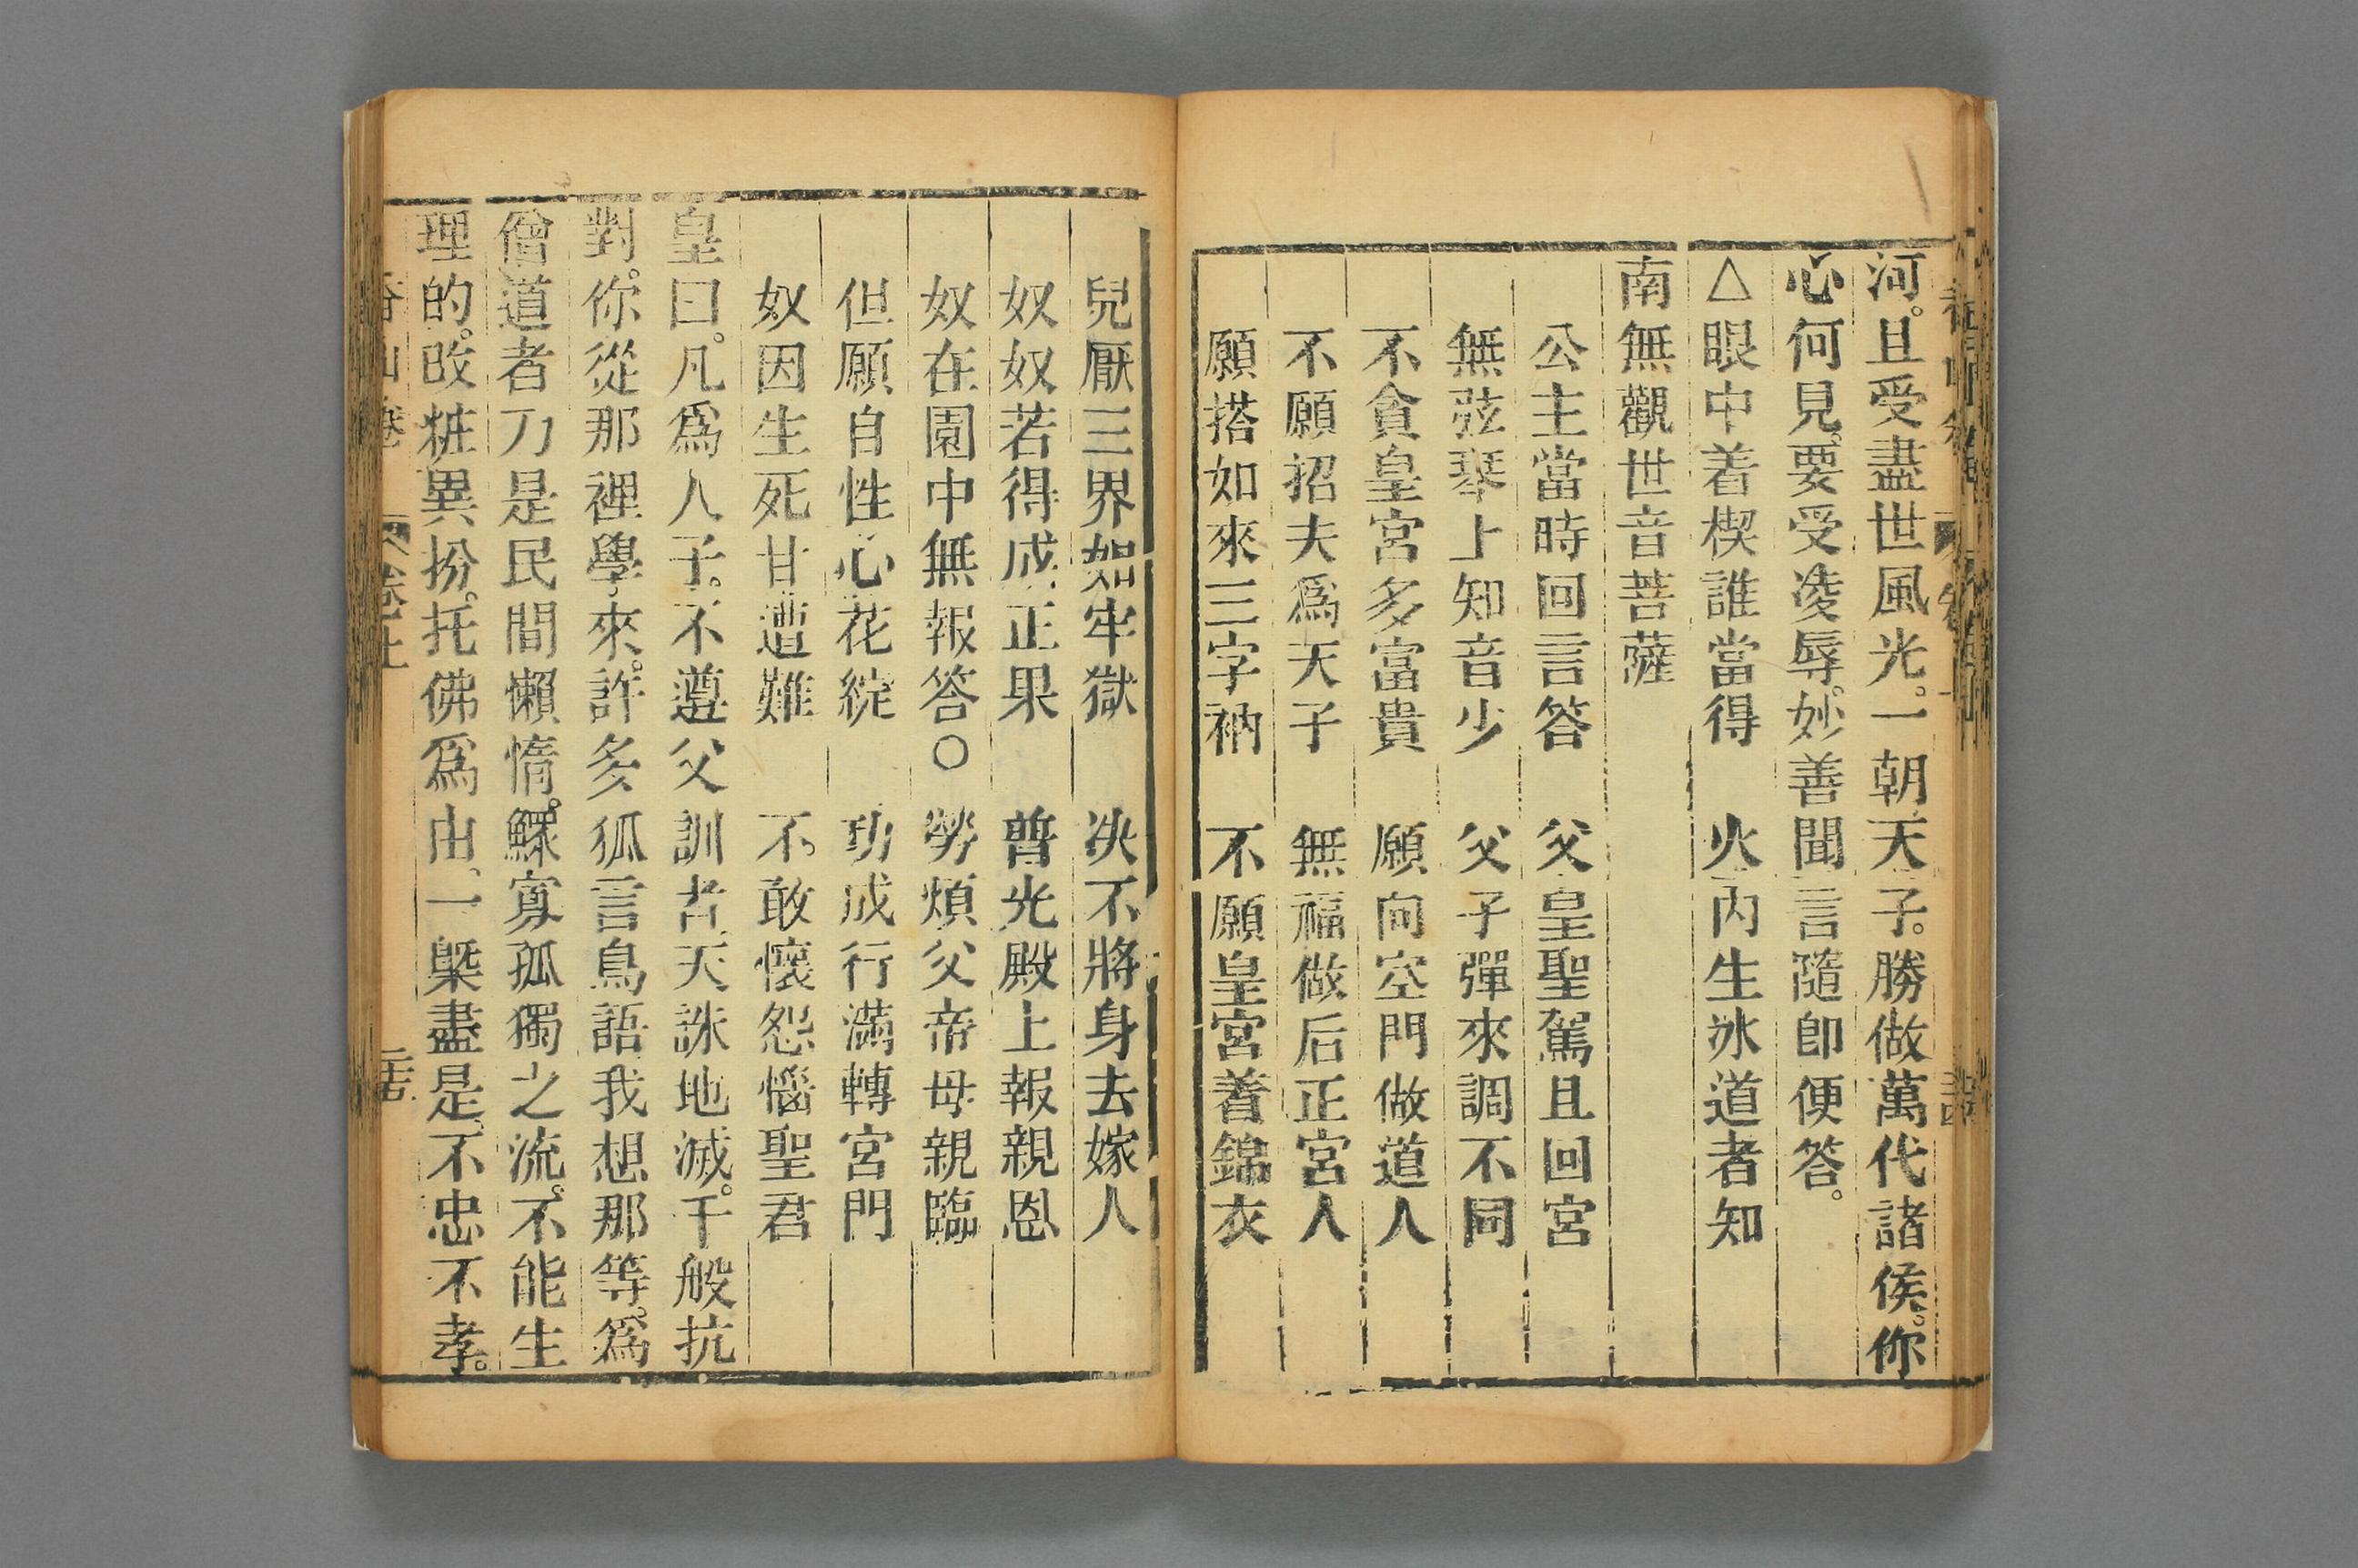 河。且受盡世風光。一朝天子。勝做萬代諸侯。你
心何見。要受凌辱。妙善聞言隨卽便答。
△眼中着楔誰當得　火內生冰道者知
南無觀世音菩薩
公主當時回言答　父皇聖駕且回宮
無弦琴上知音少　父子彈來調不同
不貪皇宮多富貴　願向空門做道人
不願招夫爲天子　無福做后正宮人
願搭如來三字衲　不願皇宮着錦衣
兒厭三界如牢獄　决不將身去嫁人
奴奴若得成正果　普光殿上報親恩
奴在園中無報答〇　勞煩父帝母親臨
但願自性心花綻　功成行滿轉宮門
奴因生死甘遭難　不敢懷怨惱聖君
皇曰。凡爲人子。不遵父訓者。天誅地滅。千般抗
對。你從那裡學來。許多狐言鳥語。我想那等。爲
僧道者。乃是民間懶惰。鰥寡孤獨之流。不能生
理的。改粧異扮。托佛爲由。一槩盡是。不忠不孝。
香山卷　卷上